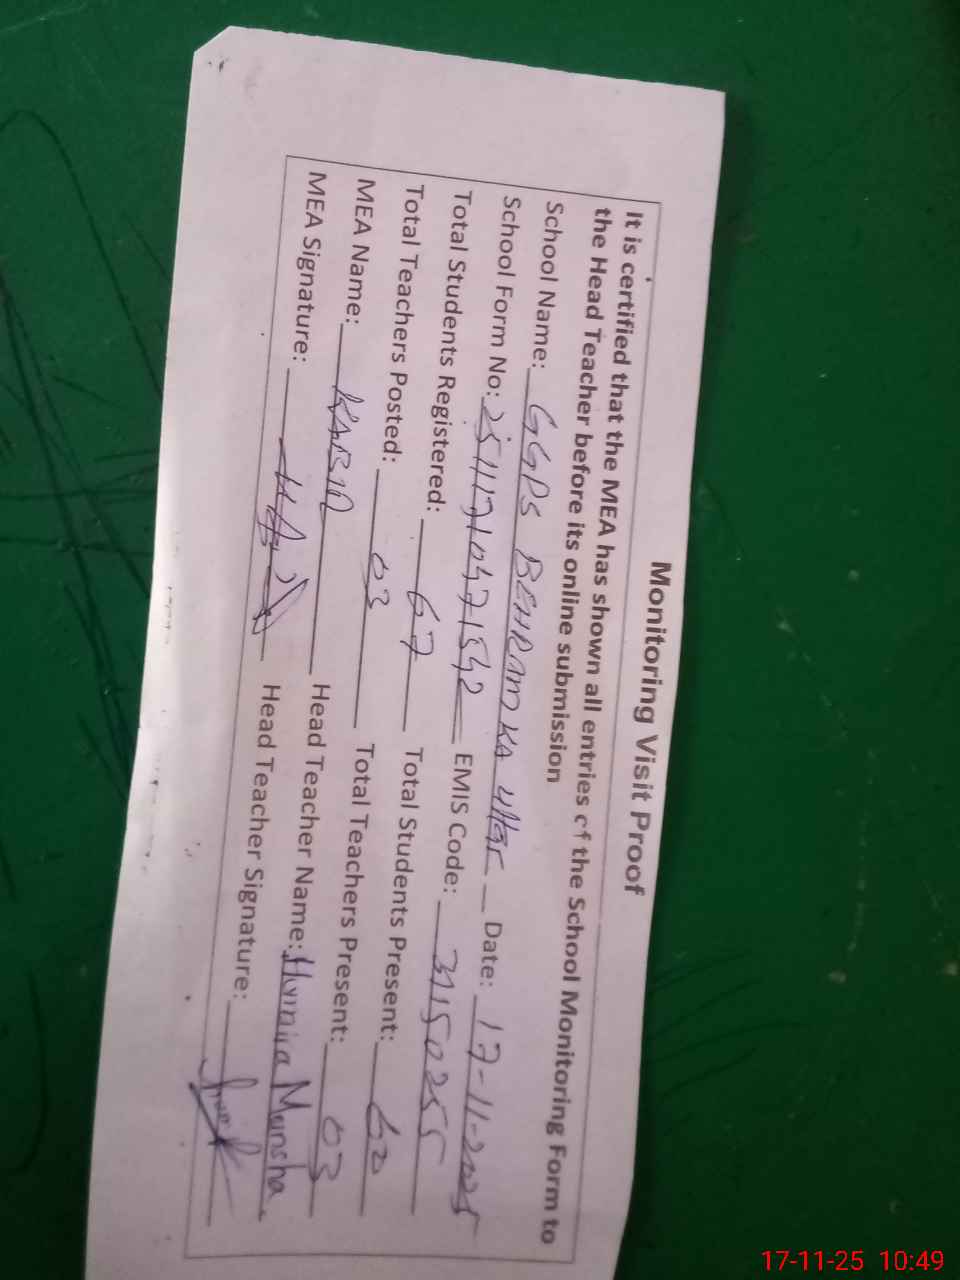 Monitoring Visit Proof
It is certified that the MEA has shown all entries of the School Monitoring Form to
the Head Teacher before its online submission
School Name: GGPS BEHRAM KA Date: 17-11-2025
School Form No: EMIS Code:
Total Students Registered: 67 Total Students Present: 60
Total Teachers Posted: 03 Total Teachers Present: 03
MEA Name: KABIR Head Teacher Name: Humaira Mansha
MEA Signature: Head Teacher Signature:
17-11-25 10:49